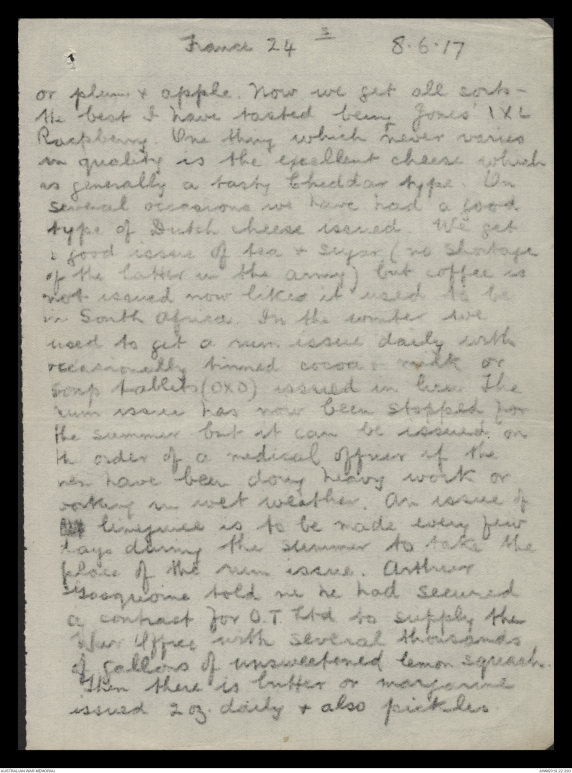 3
France 24 8.6.17
or plum & apple. Now we get all sorts -
the best I have tasted being Jones' IXL
Raspberry. One thing which never varies
in quality is the excellent cheese which
is generally a tasty Cheddar type. On
several occasions we have had a good
type of Dutch cheese issued. We get
a good issue of tea & sugar (no shortage
of the latter in the army) but coffee is
not issued now like it used to be
in South Africa. In the winter we
used to get a rum issue daily with
occasionally tinned cocoa & milk or
soup tablets (OXO) issued in lieu. The
rum issue has now been stopped for
the summer but it can be issued on
the order of a medical officer if the
men have been doing heavy work or
working in wet weather. An issue of
limejuice is to be made every few
days during the summer to take the
place of the rum issue. Arthur
told me he had secured
a contract for O.T. Ltd to supply the
War Office with several thousands
of gallons of unsweetened lemon squash.
Then there is butter or margarine
issued 2 oz. daily & also pickles
AUSTRALIAN WAR MEMORIAL